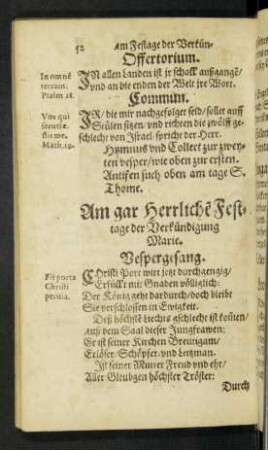 52 Am Festage der Verkün-
Offertorium.
In omnē terram. Psalm 18.
IN allen Landen ist jr schall außgangē/
vnd an die enden der Welt jre Wort.
Commun.
Vos qui secuti estis me. Mat. 19.
IR/ die mir nachgefolget seid/ sollet auff
Stülen sitzen/ vnd richten die zwölff ge-
schlecht von Israel/ spricht der Herr.
Hymnus vnd Collect zur zwey-
ten vesper/ wie oben zur ersten.
Antifen such oben am tage S.
Thome.
Am gar Herrlichē Fest-
tage der Verkündigung
Marie.
Vespergesang.
Fit porta Christi peruia.
CHristi Port wirt jetzt durchgengig/
Erfüllt mit Gnaden völliglich:
Der König geht dardurch/ doch bleibt
Sie verschlossen in Ewigkeit.
Deß höchstē Liechts gschlecht ist kom̄en/
auß dem Saal dieser Jungfrawen:
Er ist seiner Kirchen Breutigam/
Erlöser/ Schöpfer/ vnd
Ist seiner Mutter Freud vnd ehr/
Aller Gleubgen höchster Tröster:
Durch